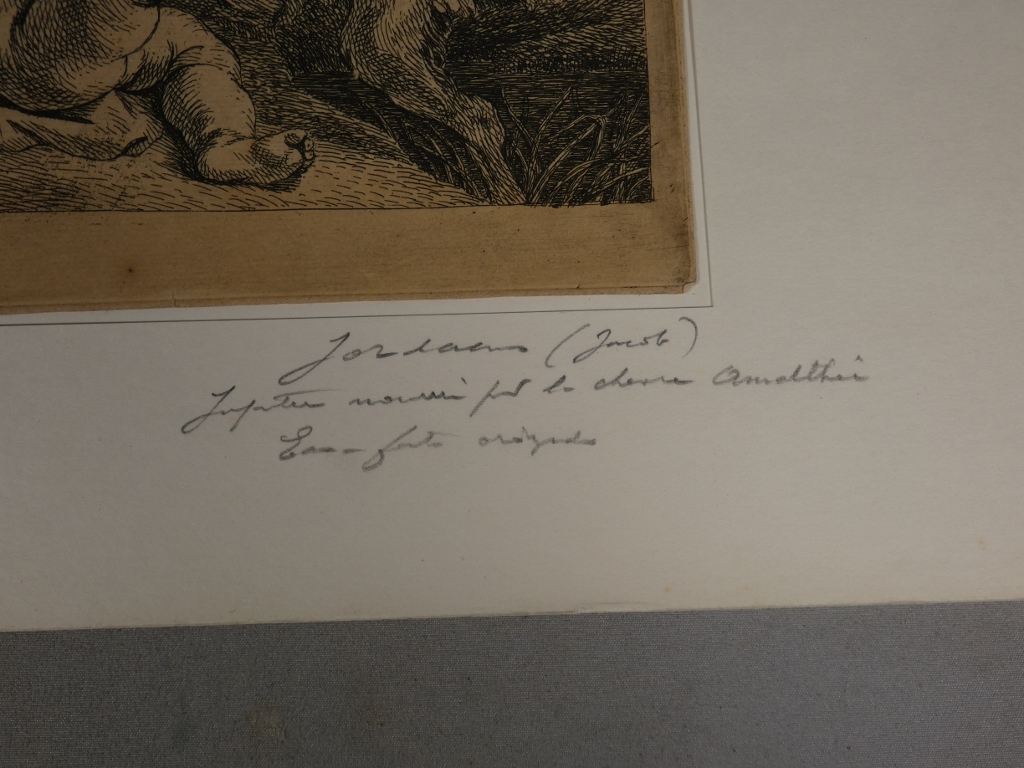 Jordaens (Jacob)
Jupiter nourri par la chèvre Amalthée
Eau-forte originale